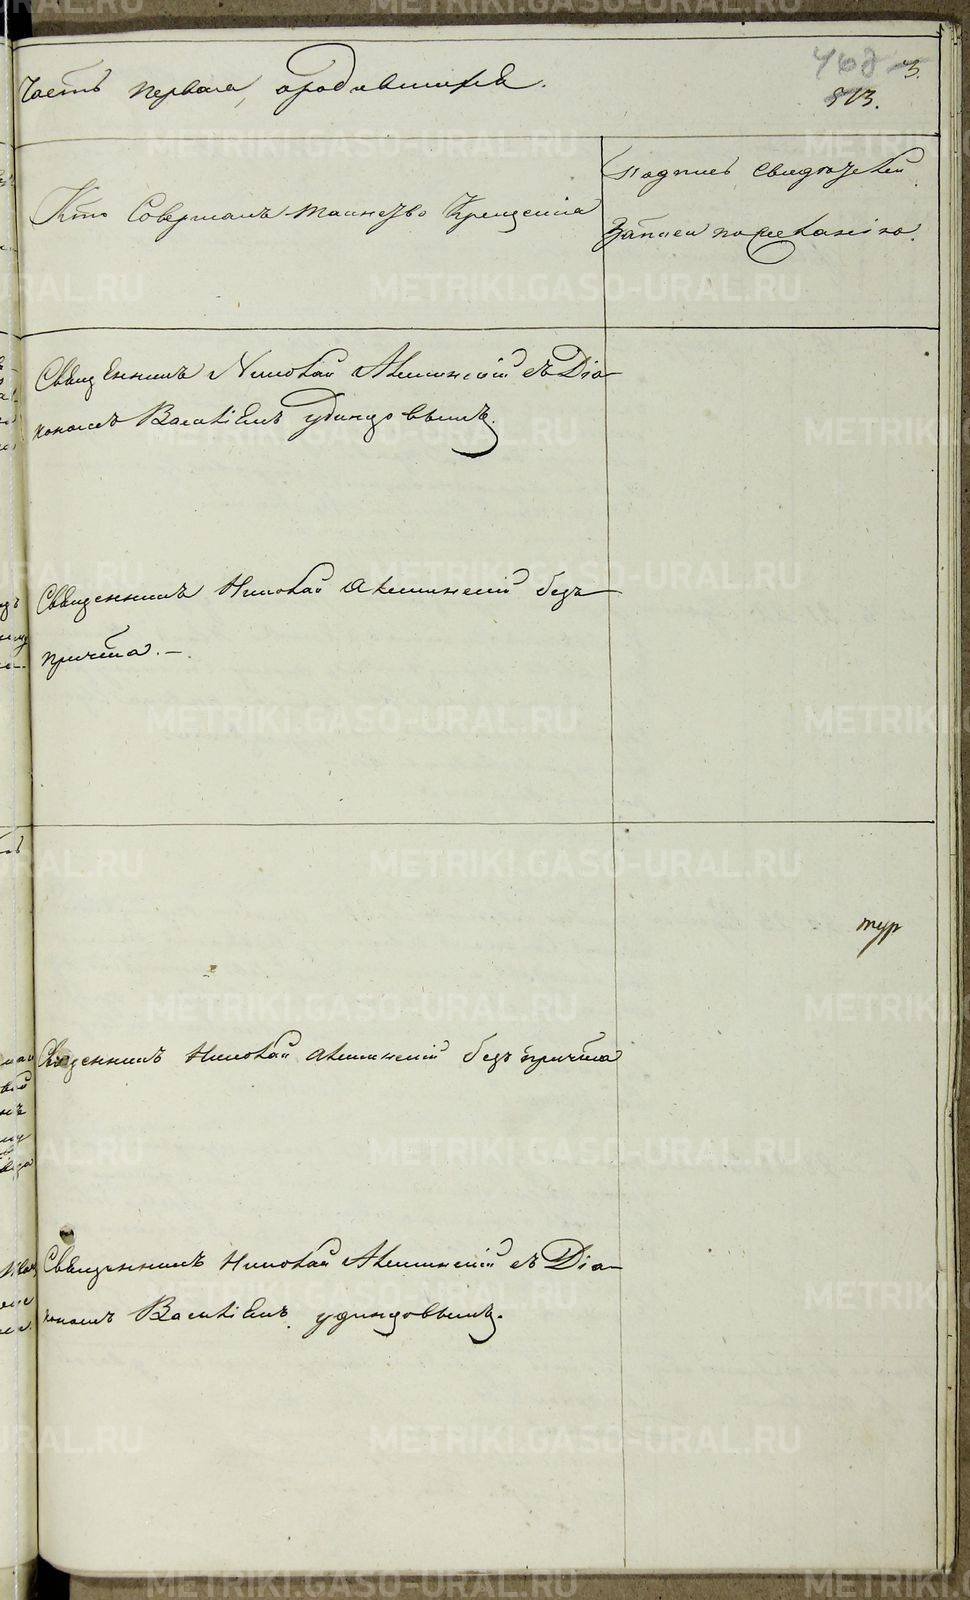 Часть первая, о родившихся.
3.
513.
Кто Совершалъ таинство Крещенія
Подпись свидѣтелей
записи по желанію.
Священникъ Николай
съ Діа-
кономъ Василіемъ Удинцовымъ.
Священникъ Николай
безъ
причта. —
Священникъ Николай
безъ причта
Священникъ Николай
съ Діа-
кономъ Василіемъ Удинцовымъ.
тур
METRIKI.GASO-URAL.RU